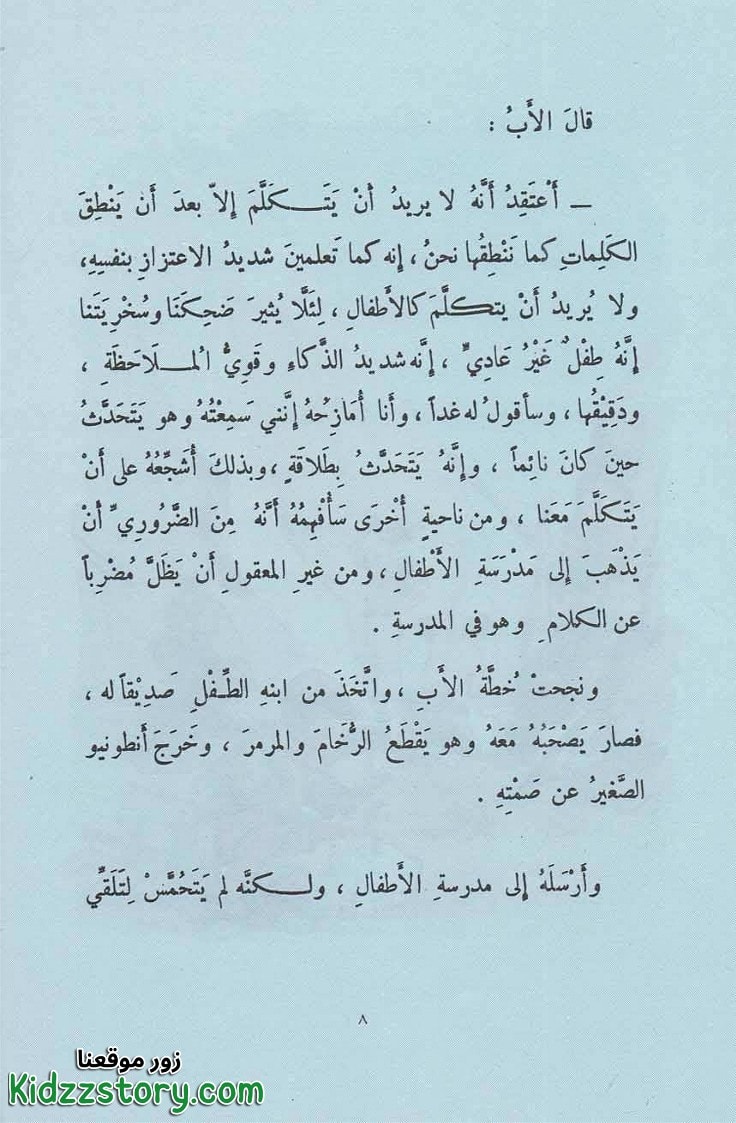 قالَ الأَبُ :
ــ أَعْتَقِدُ أَنَّهُ لا يريدُ أَنْ يَتَــكَلَّمَ إلاّ بعدَ أَن يَنْطِقَ
الكَلِماتِ كما نَنْطِقُها نحنُ ، إنه كما تَعلمينَ شديدُ الاعتزازِ بنفسِهِ،
ولا يُريدُ أَنْ يتكلَّمَ كالأَطفالِ ، لِئَلَّا يُثيرَ ضَحِكَنَا وسُخْرِيَتَنا
إِنَّهُ طِفْلٌ غَيْرُ عَادِيٍّ ، إِنَّه شديدُ الذَّكاءِ وقَوِيُّ المــلَاحَظَةِ ،
ودَقِيْقُها ، وسأقولُ له غداً ، وأَنا أُمَازِحُهُ إِنَّني سَمِعْتُهُ وهو يَتَحَدَّثُ
حينَ كانَ نائِماً ، وإِنَّهُ يَتَحَدَّثُ بِطَلاقَةٍ ، وبذلكَ أُشَجِّعُهُ على أَنْ
يَتَكَلَّمَ مَعَنا ، ومن ناحيةٍ أُخْرَى سَأُفْهِمُهُ أَنَّهُ مِنَ الضَّرُورِيِّ أَنْ
يَذْهَبَ إِلى مَدْرَسَةِ الأَطْفالِ ، ومن غيرِ المعقولِ أَنْ يَظَلَّ مُضْرِباً
عن الكلامِ وهو في المدرسةِ .
ونجحتْ خُطَّةُ الأَبِ ، واتَّخَذَ من ابنهِ الطِّفْلِ صَدِيْقاً له ،
فصارَ يَصْحَبُهُ مَعَهُ وهو يَقْطَعُ الرُّخَامَ والمرمرَ ، وخَرَجَ أَنطونيو
الصَّغيرُ عن صَمْتِهِ .
وأَرْسَلَهُ إلى مدرسةِ الأَطفالِ ، ولــكنَّه لم يَتَحَمَّسْ لِتَلَقِّي
٨
زور موقعنا
Kidzzstory.com